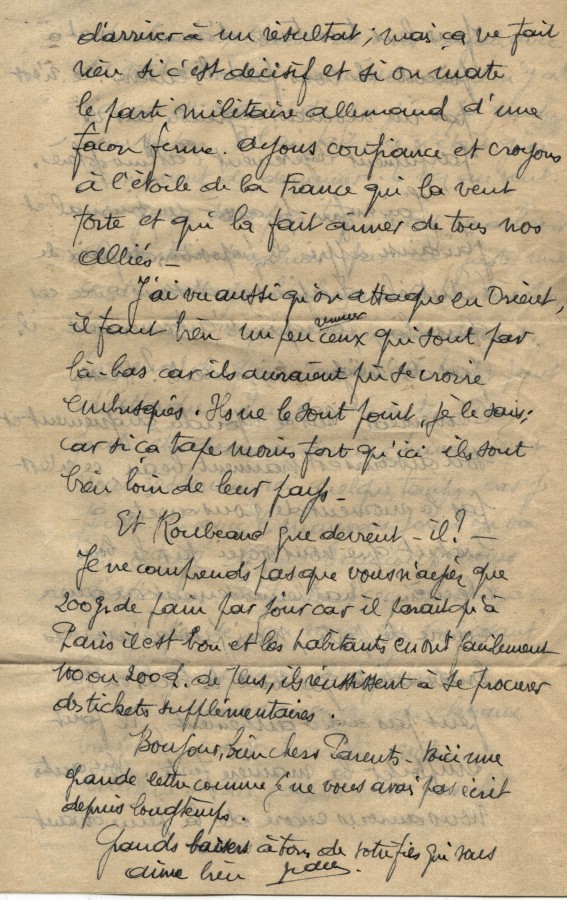 d'arriver à un résultat; mais ça ne fait
rien si c'est décisif et si on mate
le parti militaire allemand d'une
façon ferme. Ayons confiance et croyons
à l'étoile de la France qui la veut
forte et qui la fait aimer de tous nos
alliés -
J'ai vu aussi qu'on attaque en Orient,
il faut bien un peu remuer ceux qui sont par
là-bas car ils auraient pu se croire
embusqués. Ils ne le sont point, je le sais;
car si ça tape moins fort qu'ici ils sont
bien loin de leur pays -
Et Roubeaud que devient-il? -
Je ne comprends pas que vous n'ayez que
200gr. de pain par jour car il paraît qu'à
Paris il est bon et les habitants en ont facilement
100 ou 200g. de plus, ils réussissent à se procurer
des tickets supplémentaires.
Bonjour, bien chers Parents - Voici une
grande lettre comme je ne vous avais pas écrit
depuis longtemps.
Grands baisers à tous de votre fils qui vous
aime bien